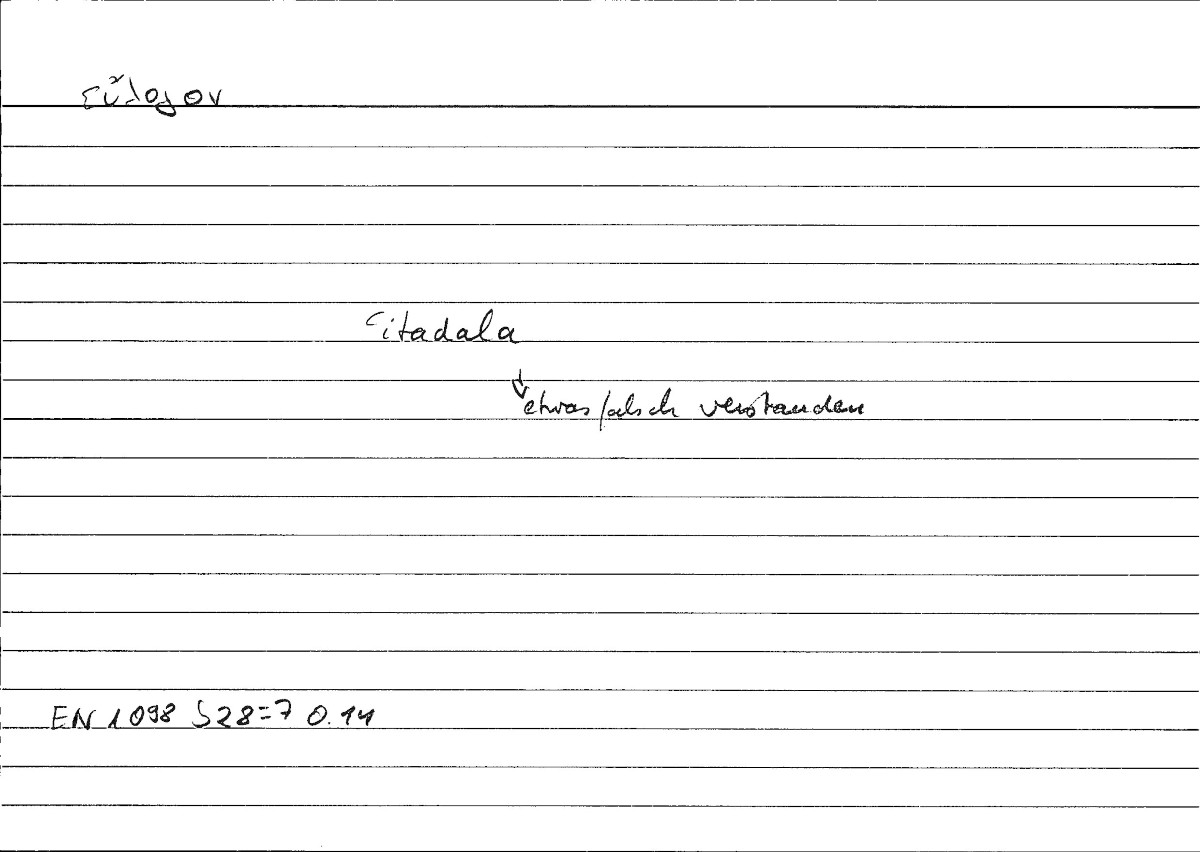 εὔλογον
ʿitadala
↓
etwas falsch verstanden
EN 1098 b28 = 70.14